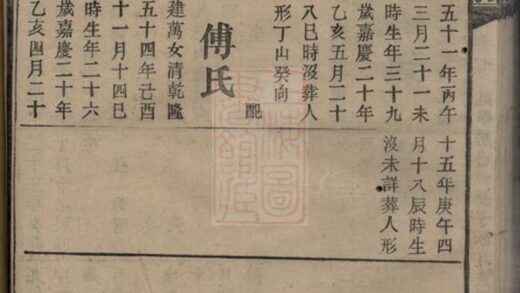 五十一年丙午
三月二十一未
時生年三十九
歲嘉慶二十年
乙亥五月二十
八巳時沒葬人
形丁山癸向
配
傅氏
建萬女清乾隆
五十四年己酉
十一月十四巳
時生年二十六
歲嘉慶二十年
乙亥四月二十
十五年庚午四
月十八辰時生
沒未詳葬人形